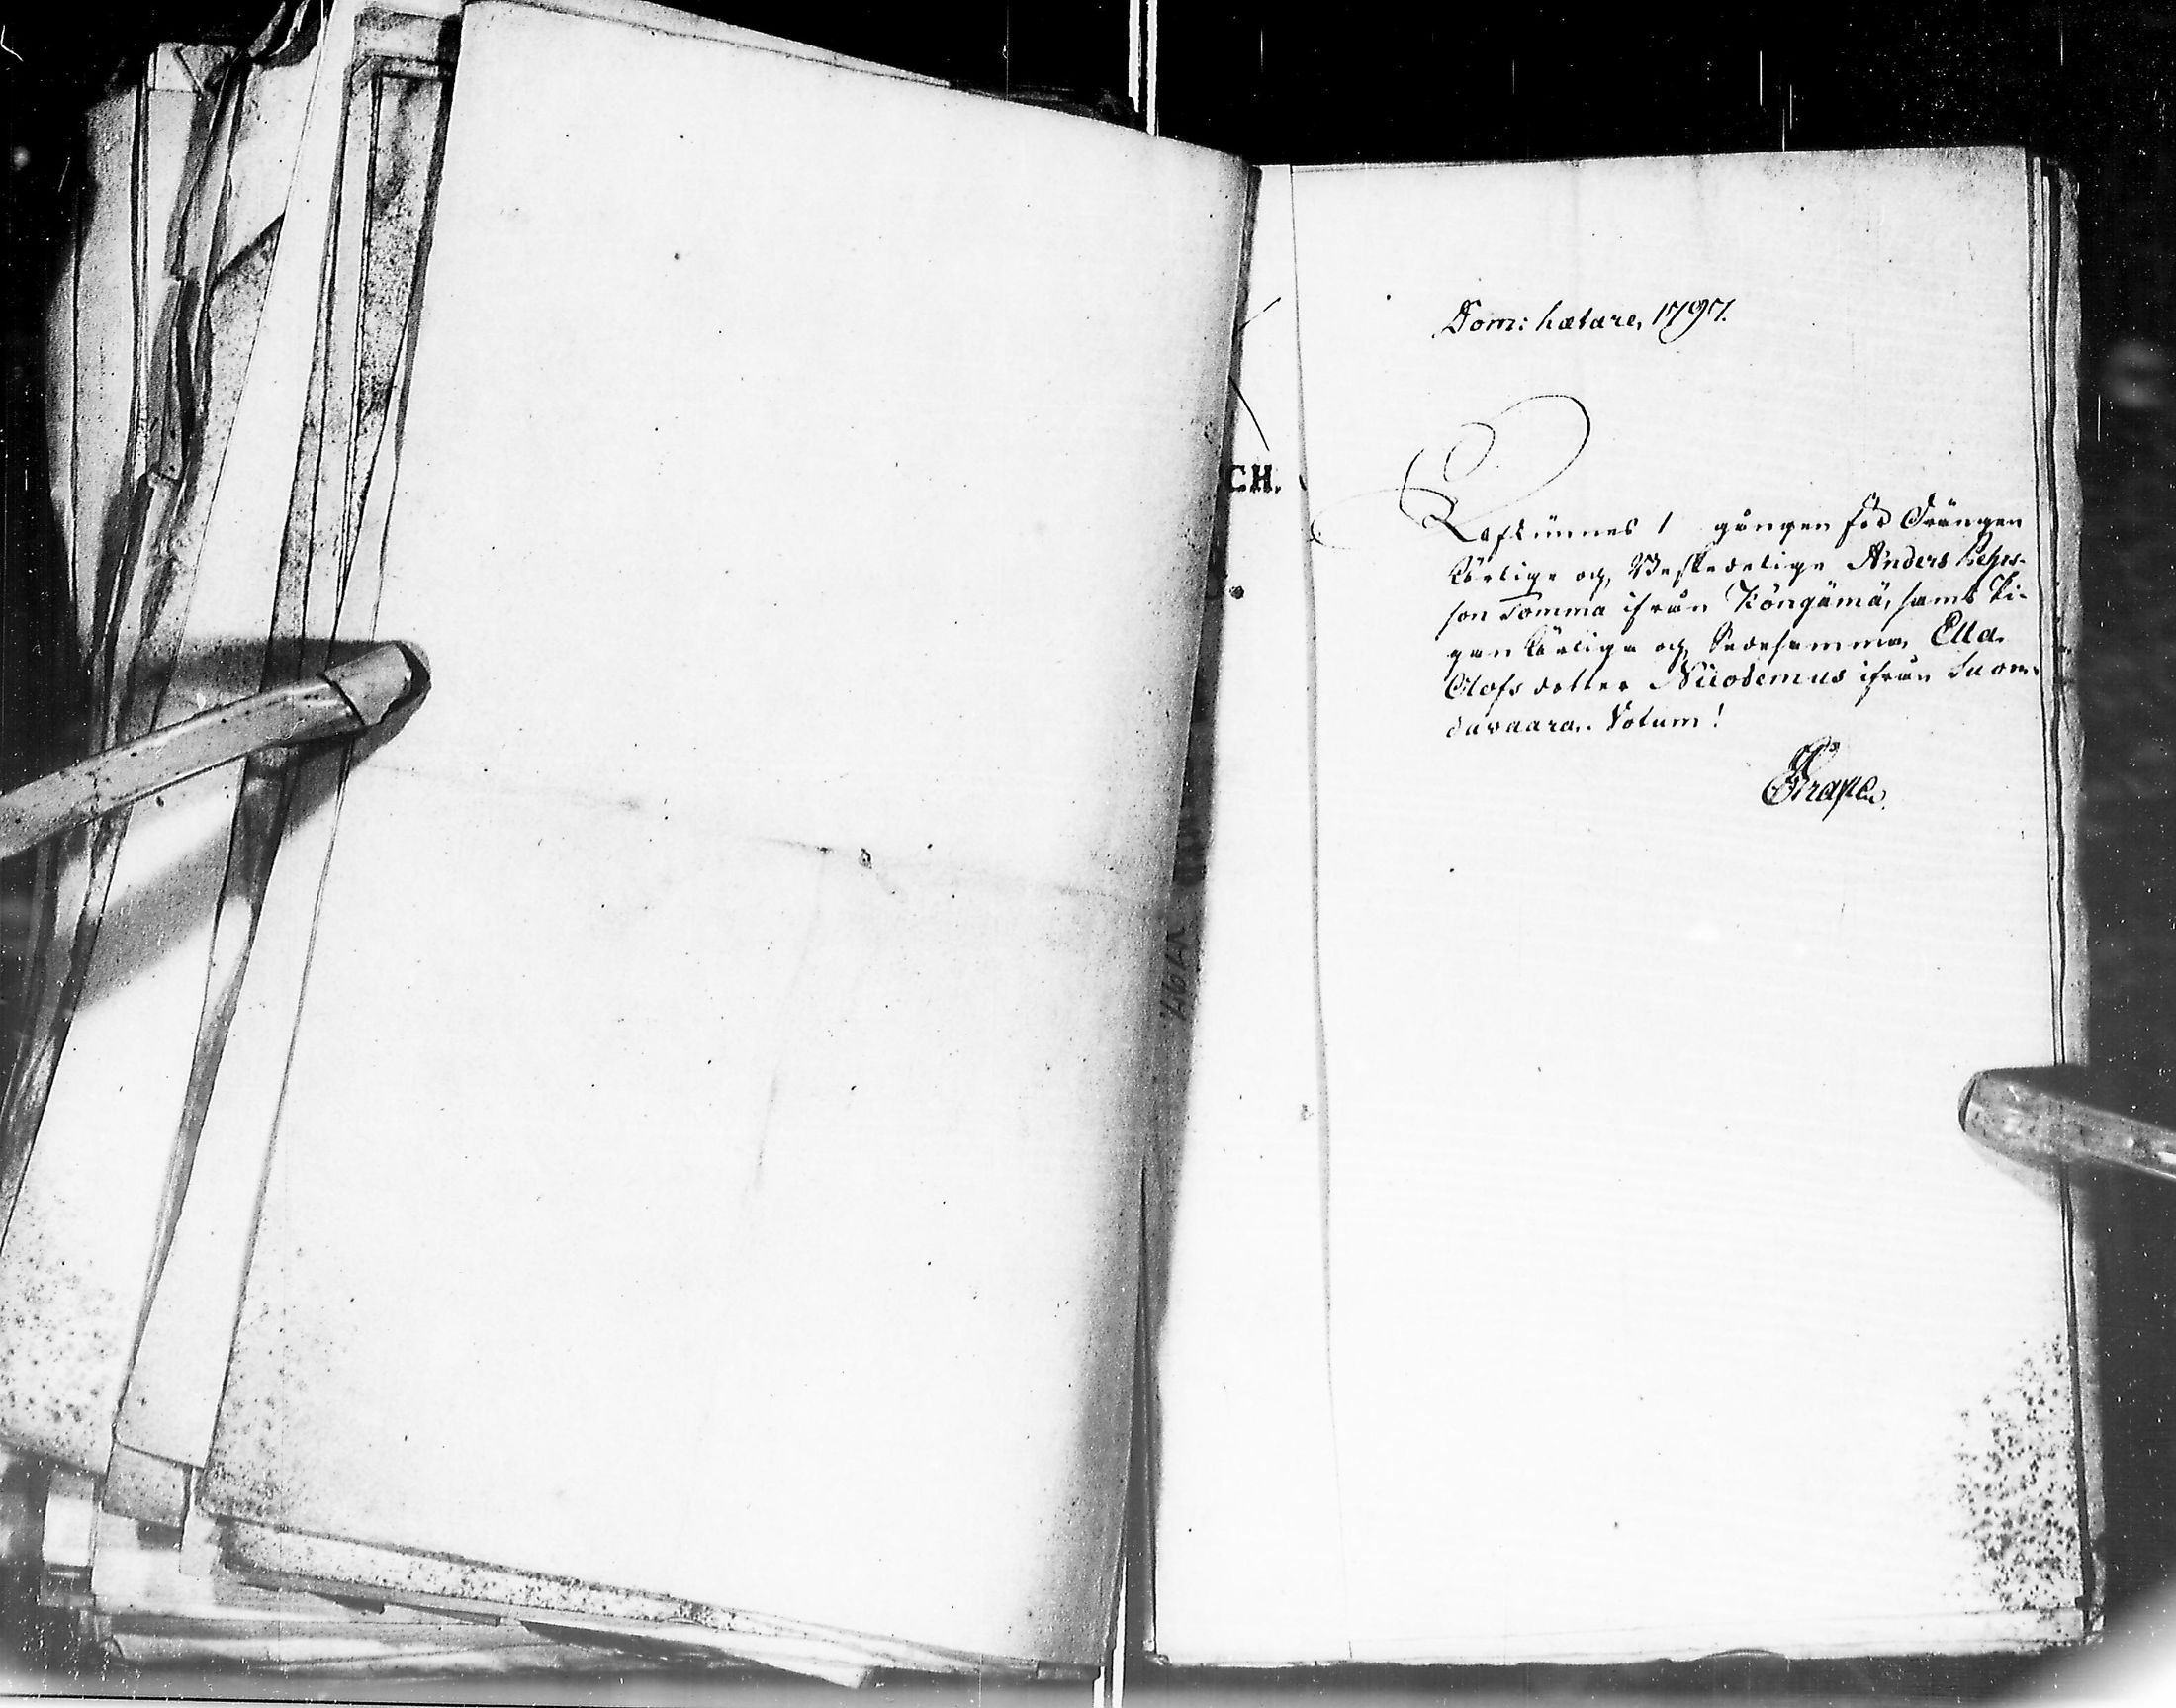 Dom: Lætare, 1797.
Lafkünnes 1 gången för Drängen
Ährlige och Beskedelige Anders Pehrs-
son Tomma ifrån Köngämä, samt Pi-
gan Ährliga och Sedesamma Ella
Olofsdotter Nicodemus ifrån Suon-
davaara. Votum!
Grape.
CH.